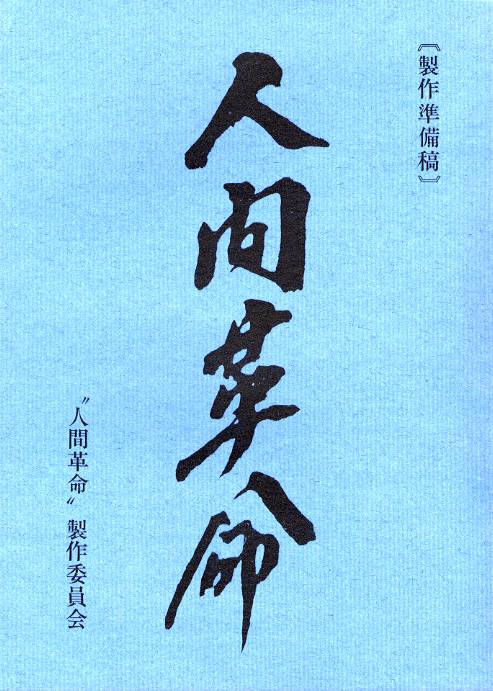 〔製作準備稿〕
人間革命
〝人間革命〟製作委員会